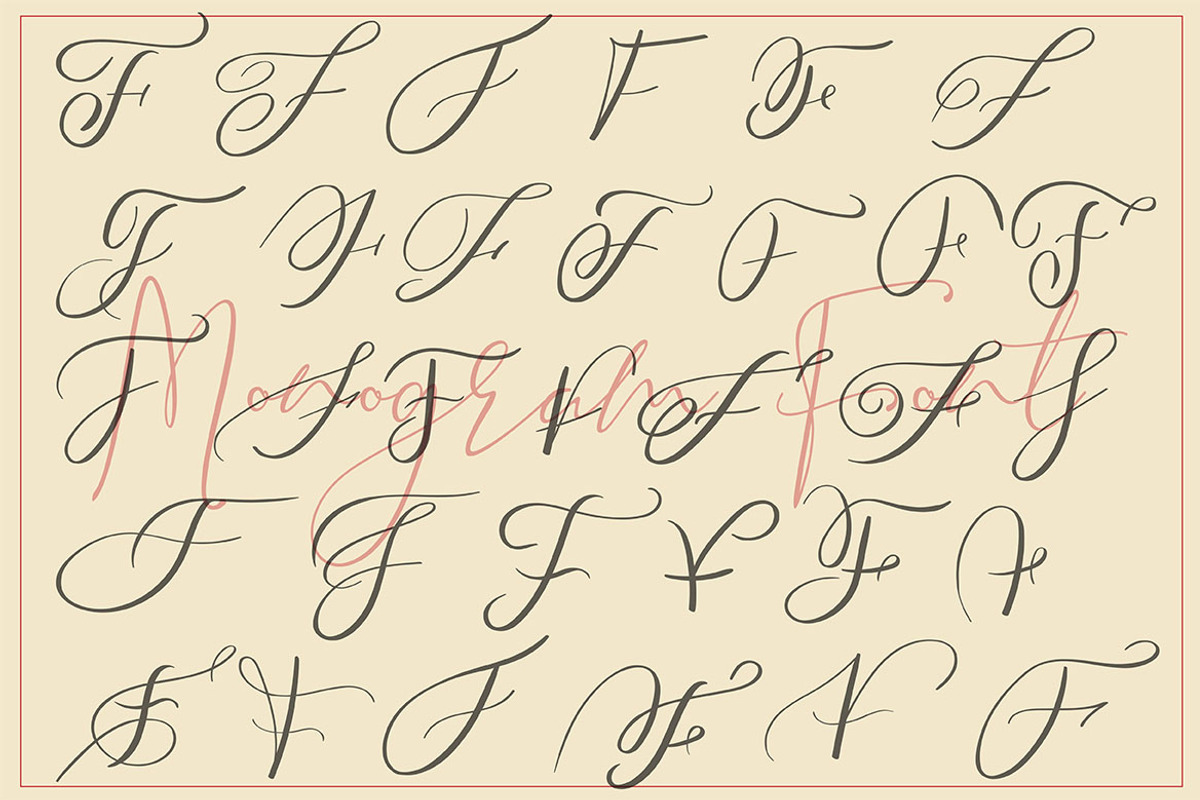 F F F F F F
F F F F F F F
Monogram Font
F F F F F F F
F F F F F F
F F F F F F